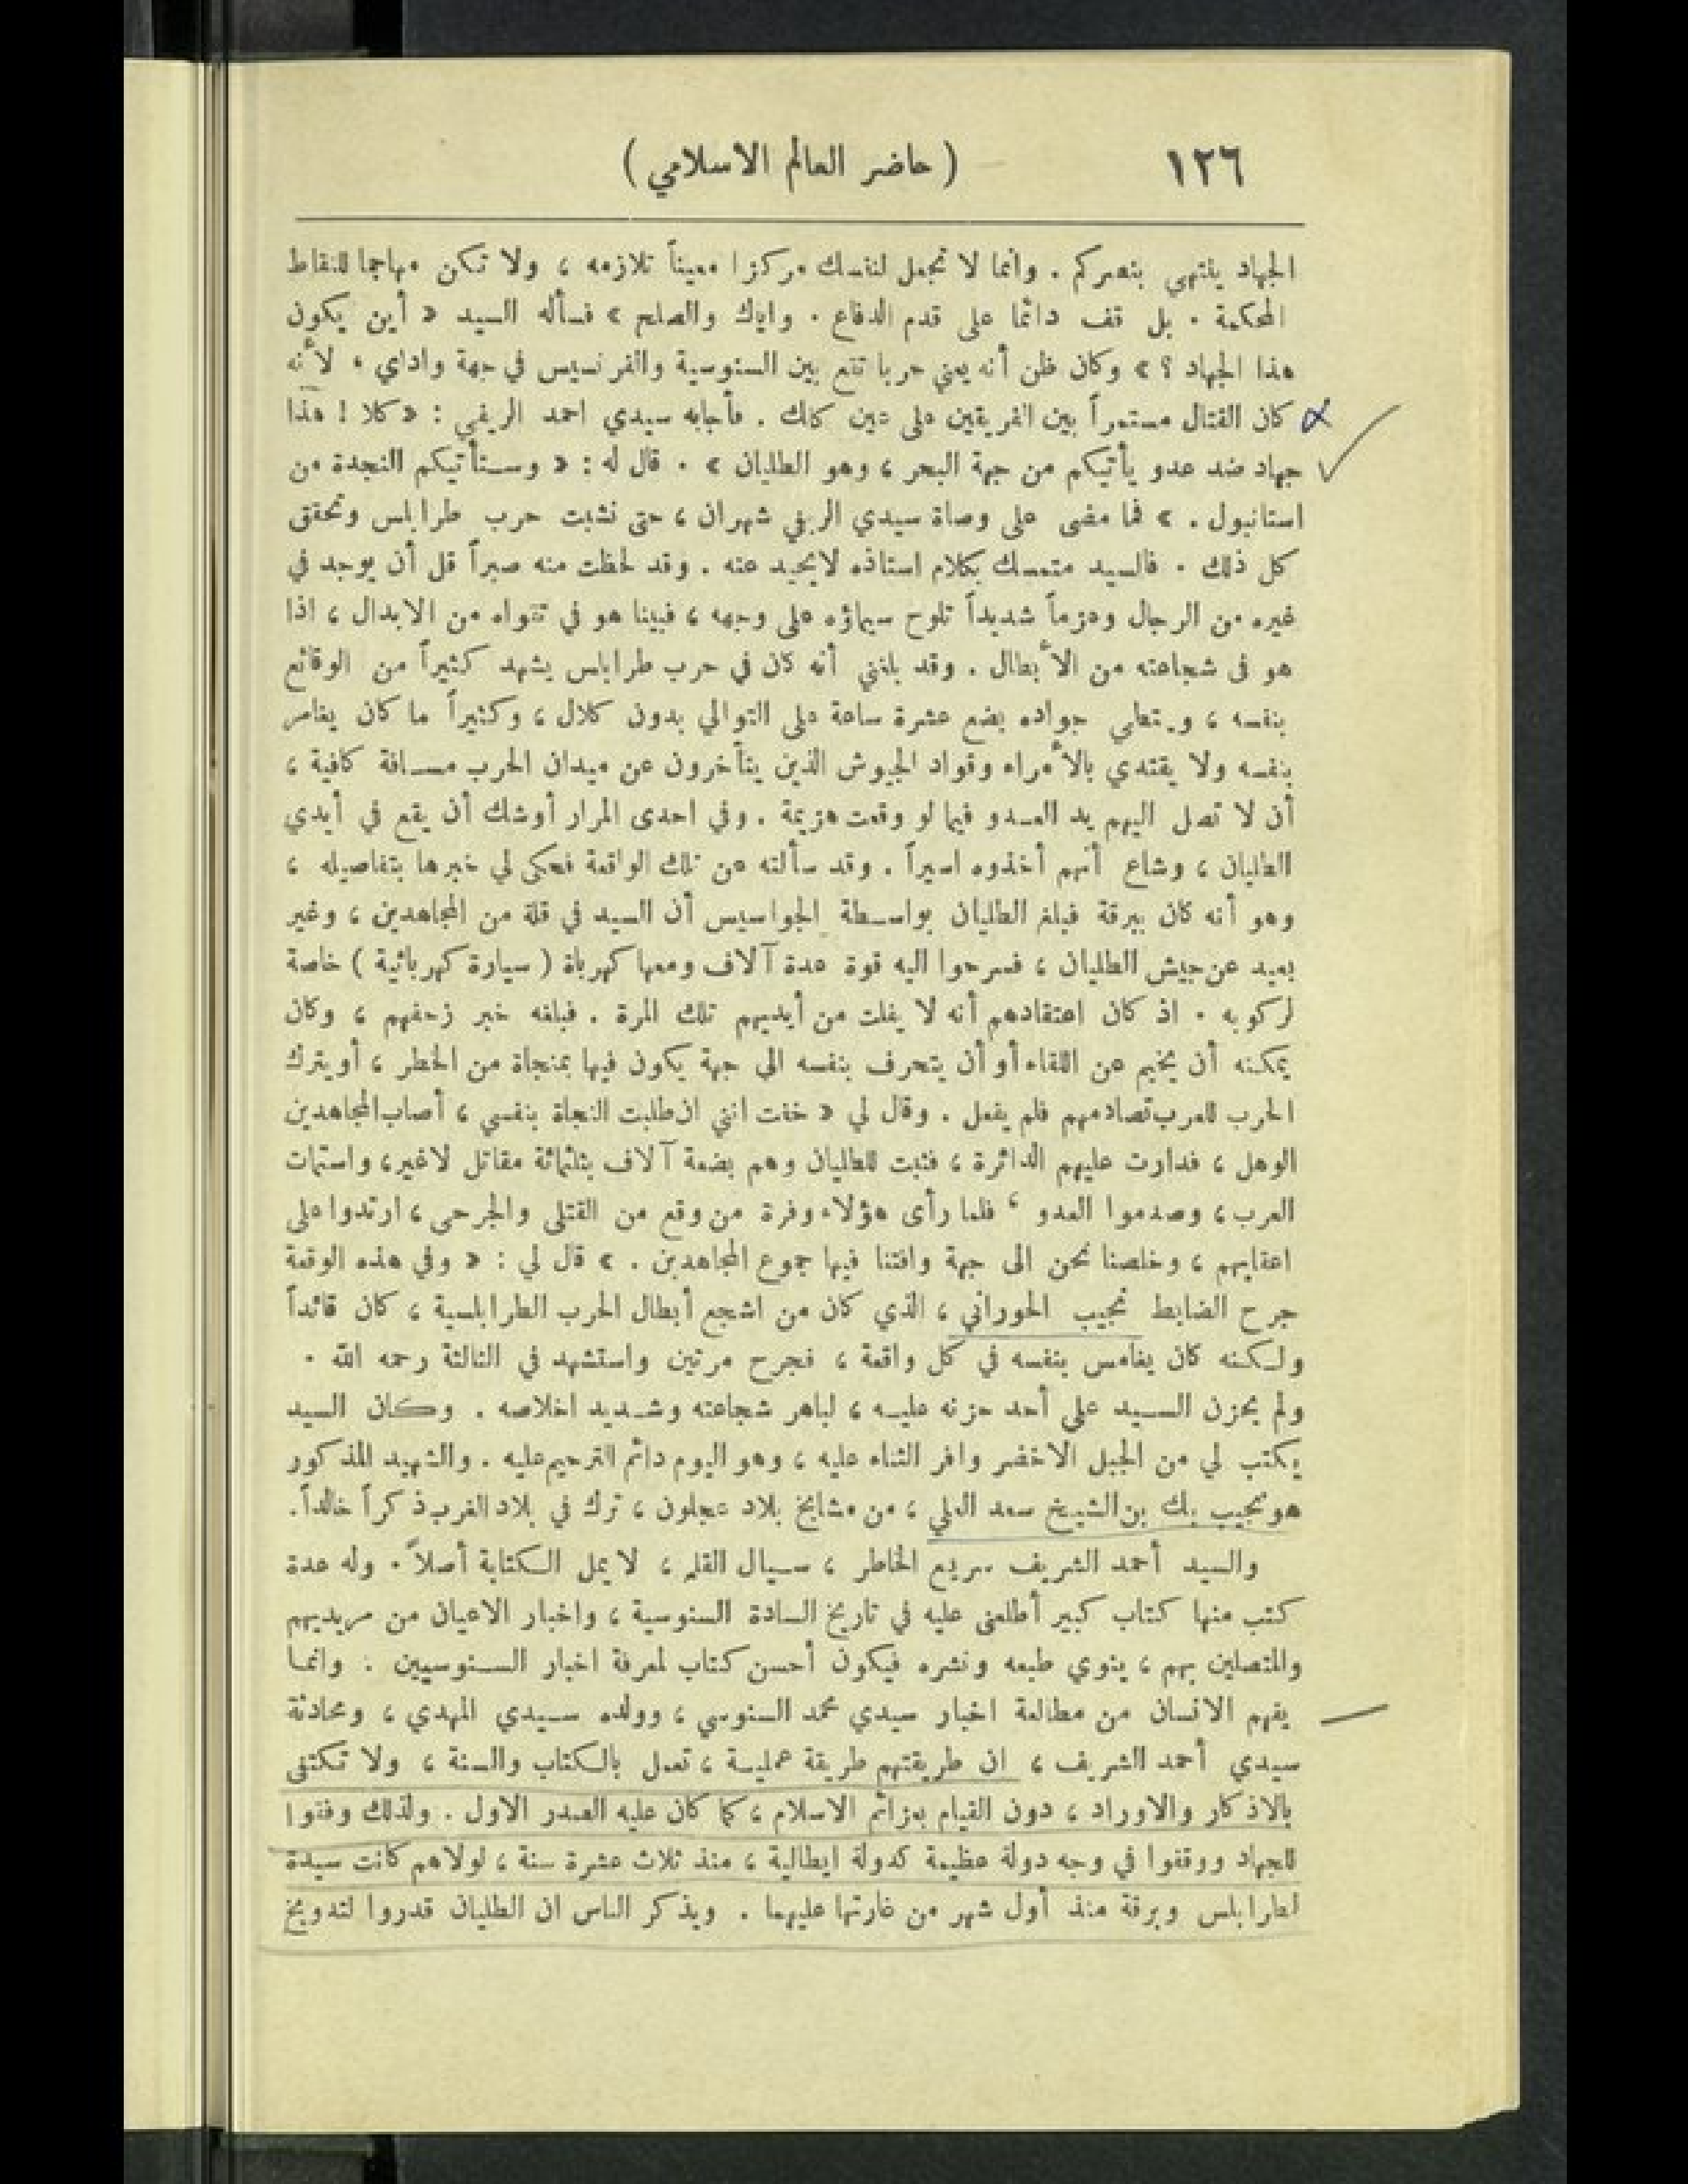 ١٢٦
( حاضر العالم الاسلامي )
الجهاد ينتهي بنصركم . وانما لا تجعل لنفسك مركزا معيناً تلازمه ، ولا تكن مهاجما للنقاط
المحكمة . بل قف دائما على قدم الدفاع . واياك والصلح » فسأله السيد « أين يكون
هذا الجهاد ؟ » وكان ظن أنه يعني حربا تقع بين السنوسية والفرنسيس في جهة واداي . لأنه
كان القتال مستمراً بين الفريقين على تلك . فأجابه سيدي احمد الريفي : « كلا ! هذا
جهاد ضد عدو يأتيكم من جهة البحر ، وهو الطليان » . قال له : « وستأتيكم النجدة من
استانبول . » فما مضى على وصاة سيدي الريفي شهران ، حتى نشبت حرب طرابلس وتحقق
كل ذلك . فالسيد متمسك بكلام استاذه لا يحيد عنه . وقد لحظت منه صبراً قل أن يوجد في
غيره من الرجال وعزماً شديداً تلوح سيماؤه على وجهه ، فبينا هو في تقواه من الابدال ، اذا
هو في شجاعته من الأبطال . وقد بلغني أنه كان في حرب طرابلس يشهد كثيراً من الوقائع
بنفسه ، ويمتطي جواده بضع عشرة ساعة على التوالي بدون كلال ، وكثيراً ما كان يغامر
بنفسه ولا يقتدي بالأمراء وقواد الجيوش الذين يتأخرون عن ميدان الحرب مسافة كافية ،
أن لا تصل اليهم يد العدو فيما لو وقعت هزيمة . وفي احدى المرار أوشك أن يقع في أيدي
الطليان ، وشاع أنهم أخذوه اسيراً . وقد سألته عن تلك الواقعة فحكى لي خبرها بتفاصيله ،
وهو أنه كان ببرقة فبلغ الطليان بواسطة الجواسيس أن السيد في قلة من المجاهدين ، وغير
بعيد عن جيش الطليان ، فسرحوا اليه قوة عدة آلاف ومعها كهرباة ( سيارة كهربائية ) خاصة
لركوبه . اذ كان اعتقادهم أنه لا يفلت من أيديهم تلك المرة . فبلغه خبر زحفهم ، وكان
يمكنه أن يخيم عن اللقاء أو أن يتحرف بنفسه الى جهة يكون فيها بمنجاة من الخطر ، أو يترك
الحرب للعرب تصادمهم فلم يفعل . وقال لي « خفت انني ان طلبت النجاة بنفسي ، أصاب المجاهدين
الوهل ، فدارت عليهم الدائرة ، فثبت للطليان وهم بضعة آلاف بثلثمائة مقاتل لاغير ، واستمات
العرب ، وصدموا العدو ، فلما رأى هؤلاء وفرة من وقع من القتلى والجرحى ، ارتدوا على
اعقابهم ، وخلصنا نحن الى جهة وافتنا فيها جموع المجاهدين . » قال لي : « وفي هذه الوقعة
جرح الضابط نجيب الحوراني ، الذي كان من اشجع أبطال الحرب الطرابلسية ، كان قائداً
ولكنه كان يغامس بنفسه في كل واقعة ، فجرح مرتين واستشهد في الثالثة رحمه الله .
ولم يحزن السيد على أحد حزنه عليه ، لباهر شجاعته وشديد اخلاصه . وكان السيد
يكتب لي من الجبل الاخضر وافر الثناء عليه ، وهو اليوم دائم الترحيم عليه . والشهيد المذكور
هو نجيب بك بن الشيخ سعد العلي ، من مشايخ بلاد عجلون ، ترك في بلاد الغرب ذكراً خالداً .
والسيد أحمد الشريف سريع الخاطر ، سيال القلم ، لا يمل الكتابة أصلاً . وله عدة
كتب منها كتاب كبير أطلعني عليه في تاريخ السادة السنوسية ، واخبار الاعيان من مريديهم
والمتصلين بهم ، ينوي طبعه ونشره فيكون أحسن كتاب لمعرفة اخبار السنوسيين : وانما
يفهم الانسان من مطالعة اخبار سيدي محمد السنوسي ، وولده سيدي المهدي ، ومحادثة
سيدي أحمد الشريف ، ان طريقتهم طريقة عملية ، تعمل بالكتاب والسنة ، ولا تكتفى
بالاذكار والاوراد ، دون القيام بعزائم الاسلام ، كما كان عليه الصدر الاول . ولذلك وفقوا
للجهاد ووقفوا في وجه دولة عظيمة كدولة ايطالية ، منذ ثلاث عشرة سنة ، لولاهم كانت سيدة
لطرابلس وبرقة منذ أول شهر من غارتها عليهما . ويذكر الناس ان الطليان قدروا لتدويخ